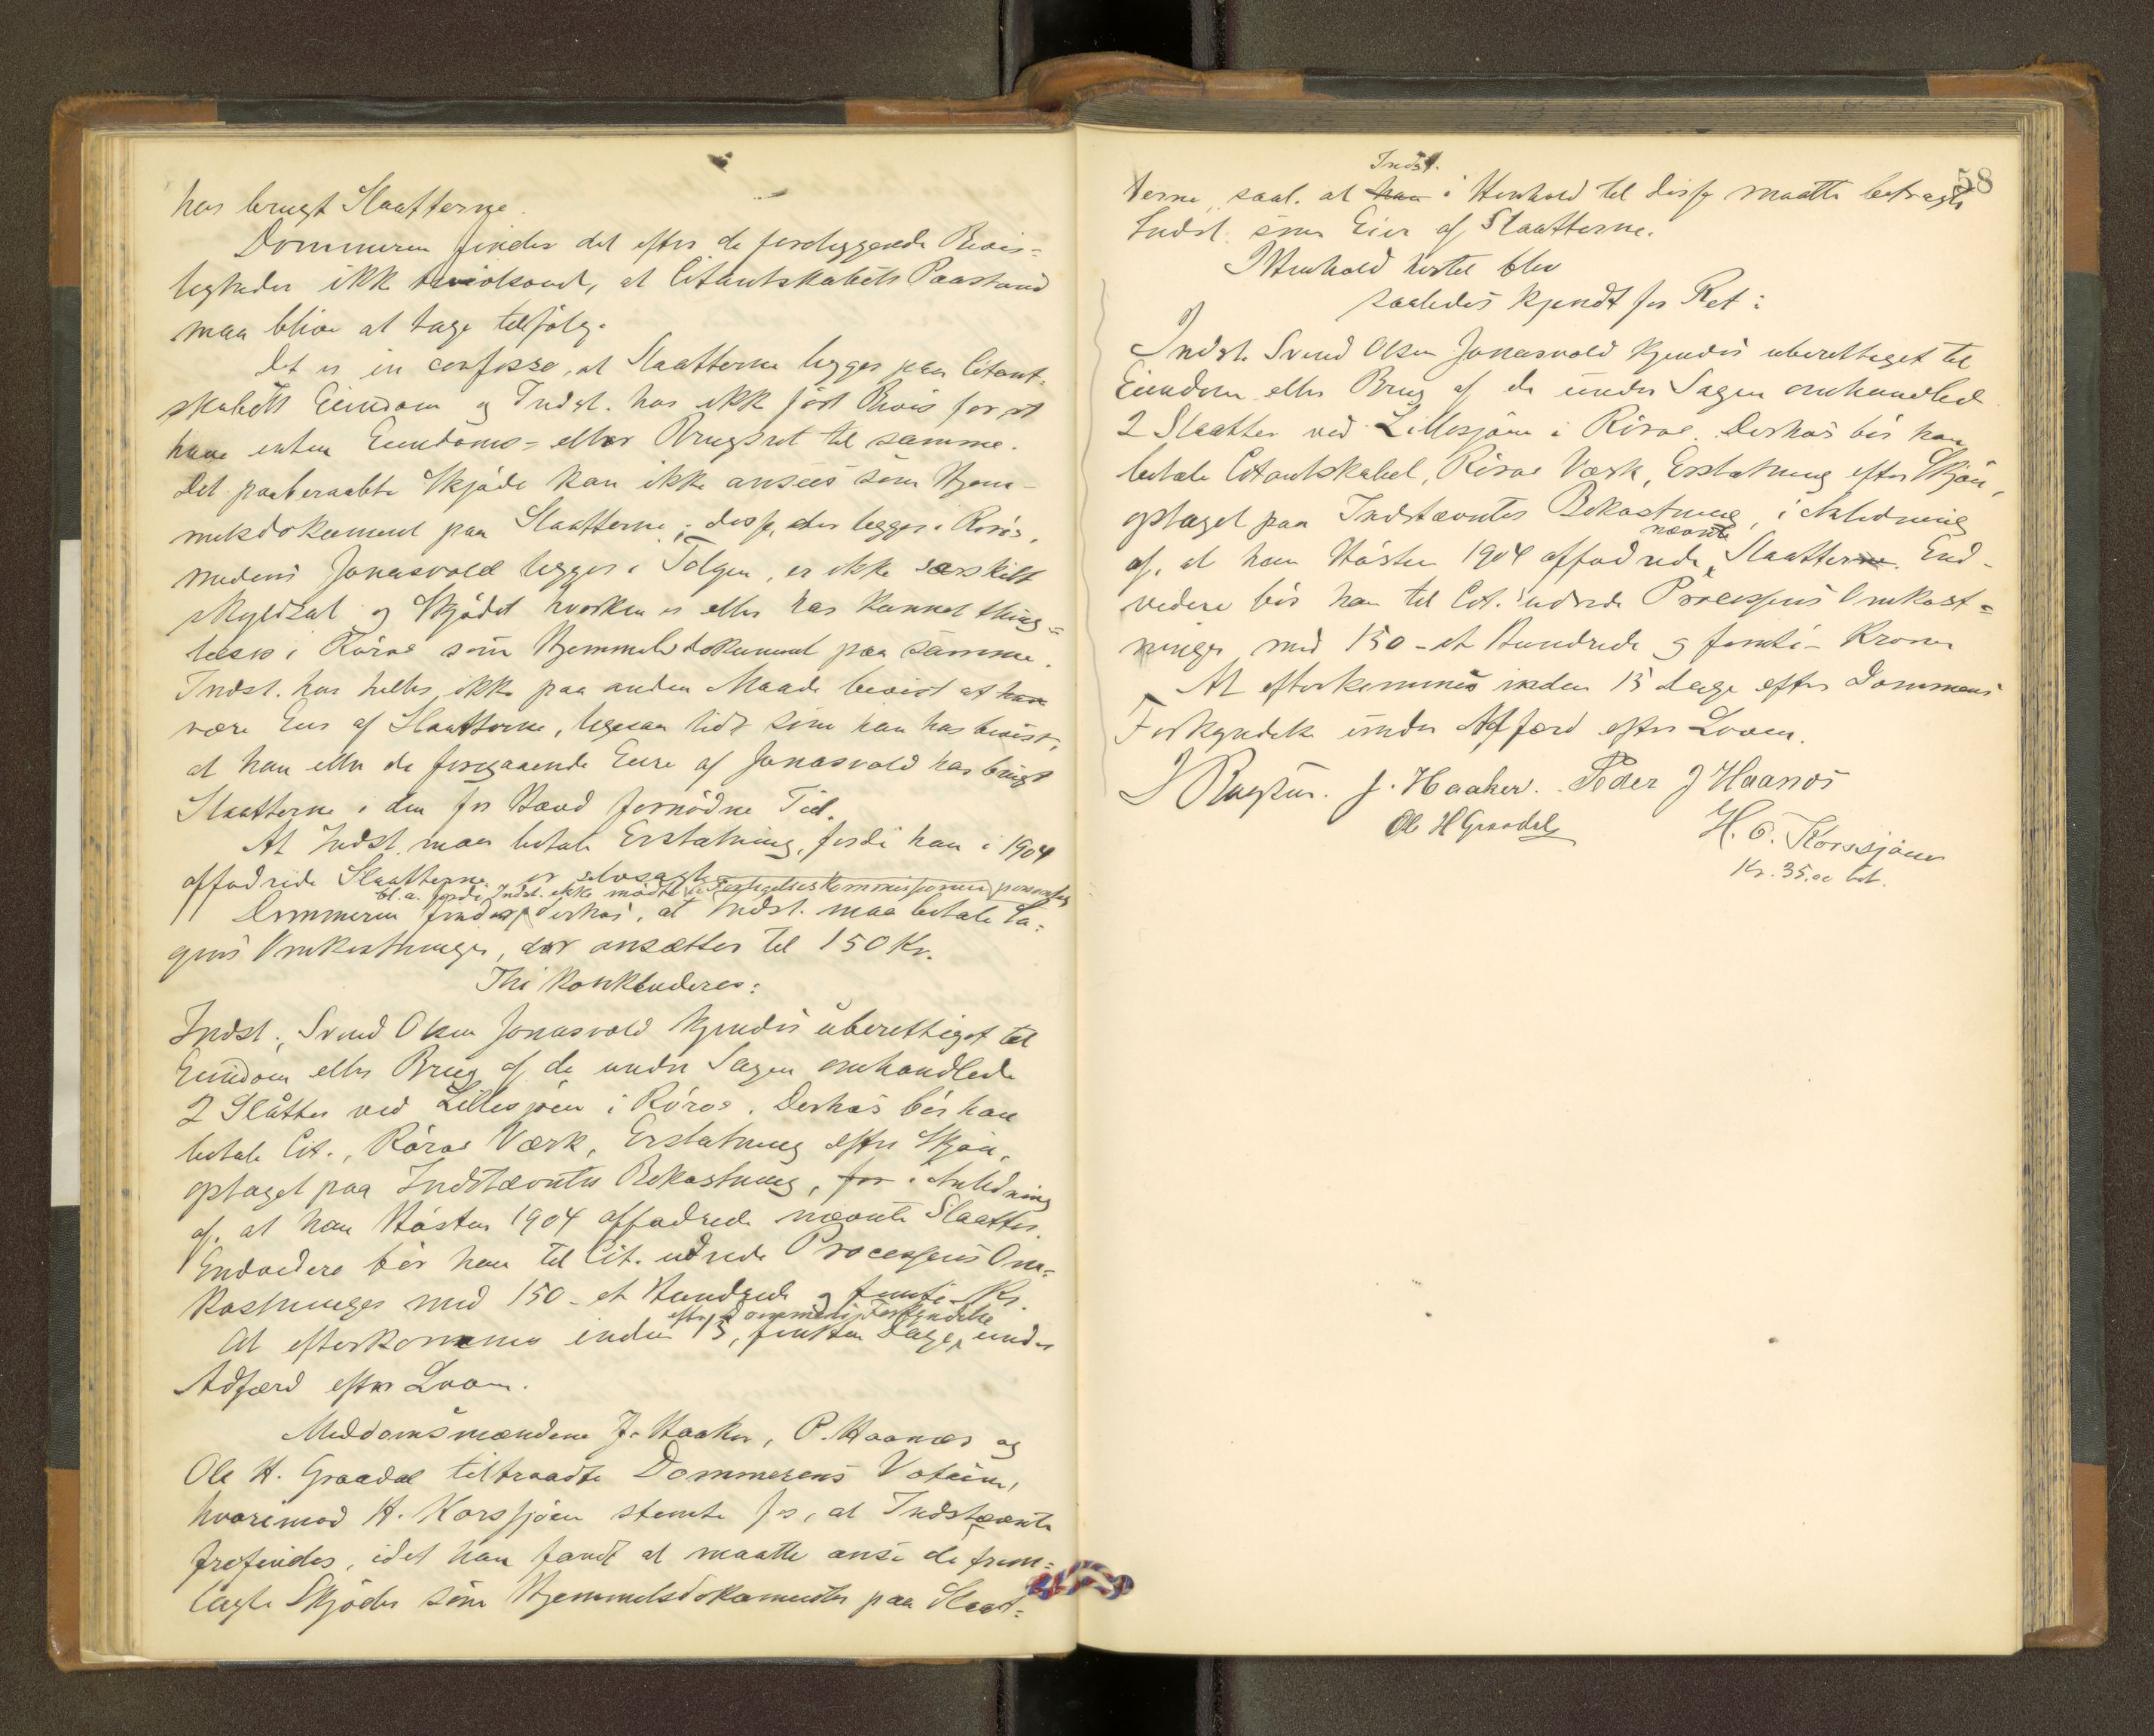 har brugt Slaatterne.
Dommeren finder det efter de foreliggende Bevis=
ligheder ikke tvivlsomt, at Citantskabets Paastand
maa blive at tage tilfölge.
Det er in confesso, at Slaatterne ligger paa Citant=
skabets Eiendom og Indst. har ikke fört Bevis for at
have enten Eiendoms= eller Brugsret til samme.
Det paaberaabte Skjöde kan ikke ansees som Hjem-
melsdokument paa Slaatterne; disse, der ligger i Rörös,
medens Jonasvold ligger i Tolgen, er ikke særskilt
skyldsat og Skjödet hverken er eller har kunnet thing=
læses i Röros som Hjemmelsdokument paa samme.
Indst. har heller ikke paa anden Maade bevist at han
være Eier af Slaatterne, ligesaa lidt som han har bevist,
at han eller de foregaaende Eiere af Jonasvold har brugt
Slaatterne i den for Hævd fornödne Tid.
At Indst. maa betale Erstatning, fordi han i 1904
affodrede Slaatterne er selvsagt.
bl. a. fordi Indst. ikke mödte ved Forligelseskommissionen personlig
Dommeren finder derhos, at Indst. maa betale Sa=
gens Omkostninger, der ansættes til 150 Kr.
Thi konkluderes:
Indst., Svend Olsen Jonasvold kjendes uberettiget til
Eiendom eller Brug af de under Sagen omhandlede
2 Slåtter ved Lillesjöen i Röros. Derhos bör han
betale Cit., Röros Værk, Erstatning efter Skjön,
optaget paa Indstævntes Bekostning, for i Anledning
af, at han Hösten 1904 affodrede nævnte Slaatter.
Endvidere bör han til Cit. udrede Processens Om=
kostninger med 150 - et Hundrede og femti - Kr.
efter Dommens Forkyndelse
At efterkommes inden 15, femten Dage, under
Adfærd efter Loven.
Meddomsmændene J. Haaker, P. Haanæs og
Ole H. Graadal tiltraadte Dommerens Votum,
hvorimod H. Korssjöen stemte for, at Indstævnte
frifindes, idet han fandt at maatte anse de frem=
lagte Skjöder som Hjemmelsdokumenter paa Slaat=
58
Indst.
terne, saal. at han i Henhold til disse maatte betragte
Indst. som Eier af Slaatterne.
I Henhold hertil blev
saaledes kjendt for Ret:
Indst. Svend Olsen Jonasvold kjendes uberettiget til
Eiendom eller Brug af de under Sagen omhandlede
2 Slaatter ved Lillesjöen i Röros. Derhos bör han
betale Citantskabet, Röros Værk, Erstatning efter Skjön,
optaget paa Indstævntes Bekostning, i Anledning
nævnte
af, at han Hösten 1904 affodrede Slaatterne. End-
videre bör han til Cit. udrede Processens Omkost=
ninger med 150 - et Hundrede og femti - Kroner
At efterkommes inden 15 dage efter Dommens
Forkyndelse under Adfærd efter Loven.
J. Haaker. Peder J Haanæs
Ole H Graadal
H. O. Korssjöen
Kr. 35.00 bet.